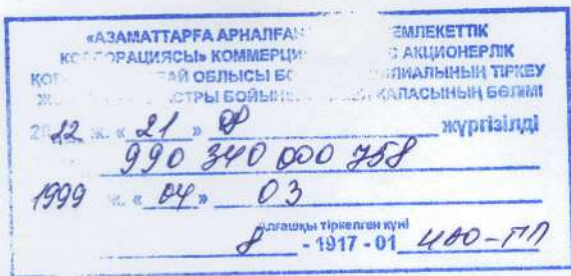 «АЗАМАТТАРҒА АРНАЛҒАН ЕМЛЕКЕТТІК
КОРПОРАЦИЯСЫ» КОММЕРЦИ С АКЦИОНЕРЛІК
ҚО АЙ ОБЛЫСЫ БО ЛИАЛЫНЫҢ ТІРКЕУ
Ж СТРЫ БОЙЫН ҚАЛАСЫНЫҢ БӨЛІМІ
2022 ж. «21» 08 жүргізілді
990 340 000 758
1999 ж. «04» 03
Алғашқы тіркелген күні
8 - 1917 - 01